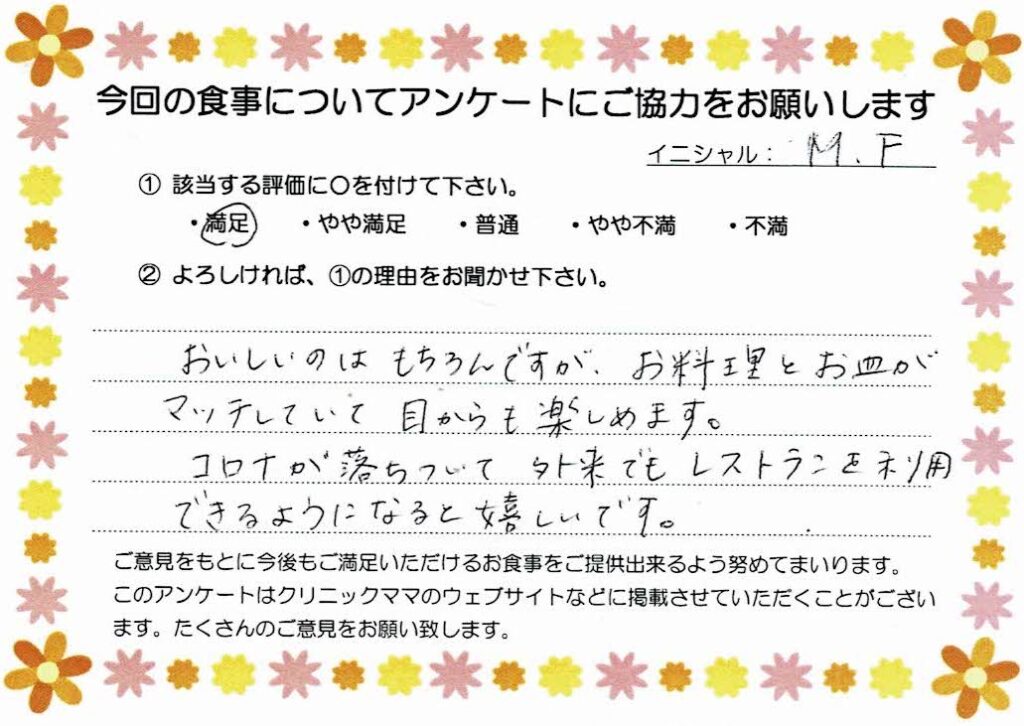 今回の食事についてアンケートにご協力をお願いします
イニシャル： M.F
① 該当する評価に○を付けて下さい。
・満足 ・やや満足 ・普通 ・やや不満 ・不満
② よろしければ、①の理由をお聞かせ下さい。
おいしいのは もちろんですが、お料理とお皿が
マッチしていて 目からも楽しめます。
コロナが落ちついて 外来でもレストランを利用
できるようになると嬉しいです。
ご意見をもとに今後もご満足いただけるお食事をご提供出来るよう努めてまいります。
このアンケートはクリニックママのウェブサイトなどに掲載させていただくことがござい
ます。たくさんのご意見をお願い致します。